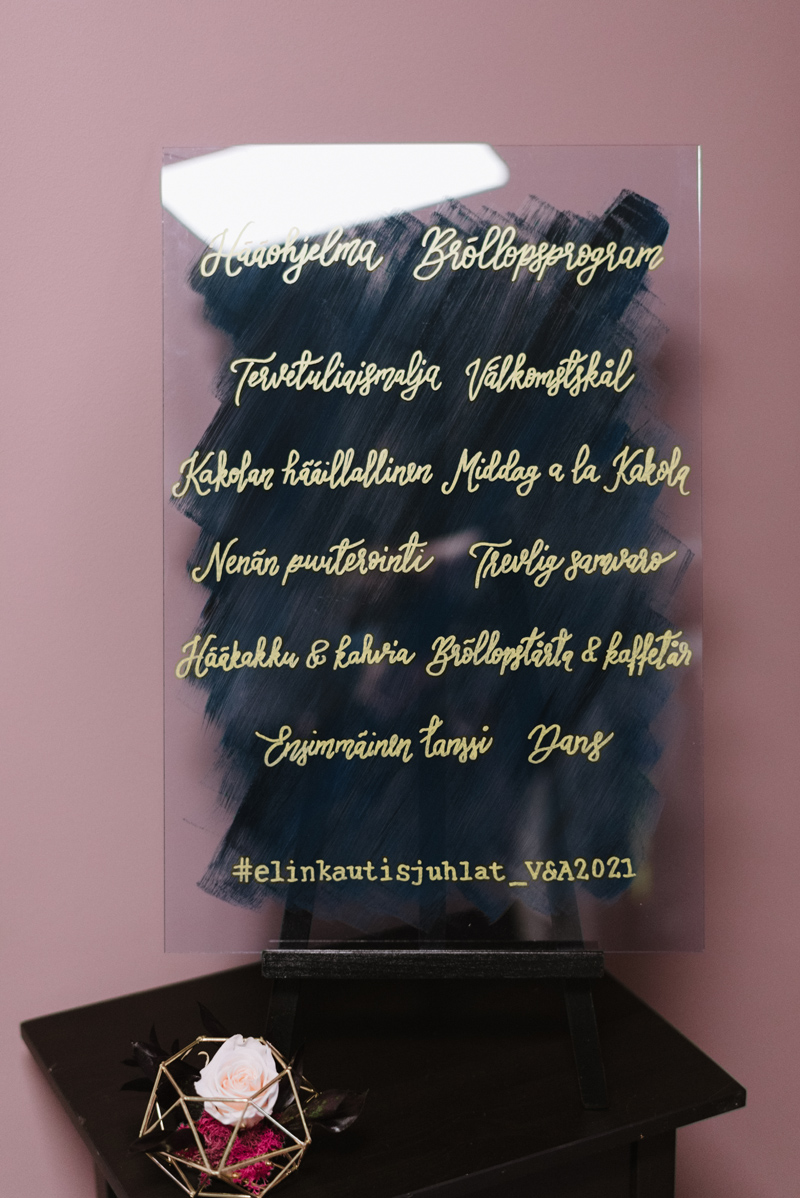 Hääohjelma Bröllopsprogram
Tervetuliaismalja Välkomstskål
Kakolan hääillallinen Middag a la Kakola
Nenän puuterointi Trevlig samvaro
Hääkakku & kahvia Bröllopstårta & kaffetår
Ensimmäinen tanssi Dans
#elinkautisjuhlat_V&A2021